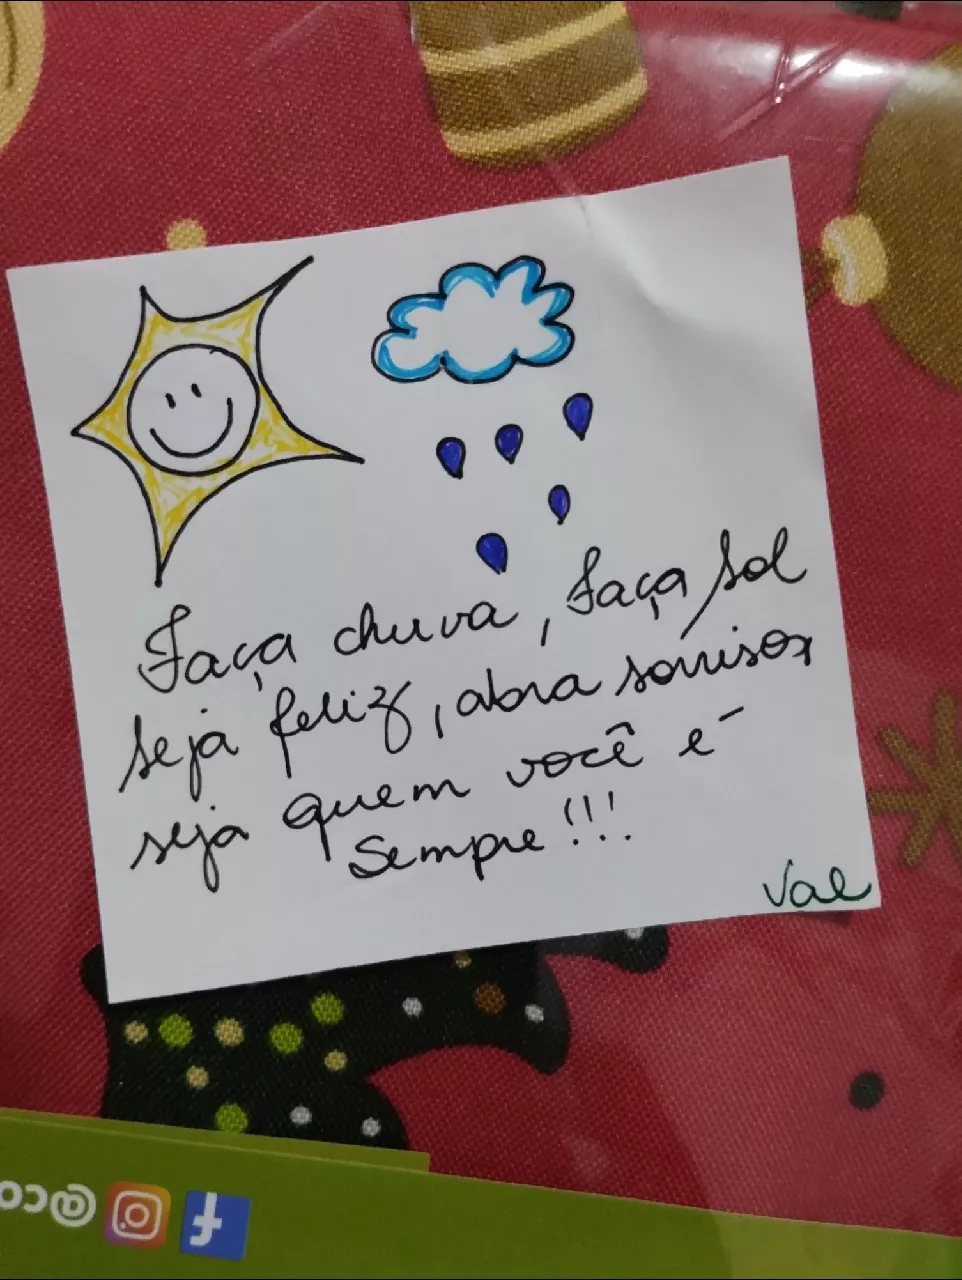 Faça chuva, faça sol
seja feliz, abra sorrisos,
seja quem você é
sempre!!!
Val
@co